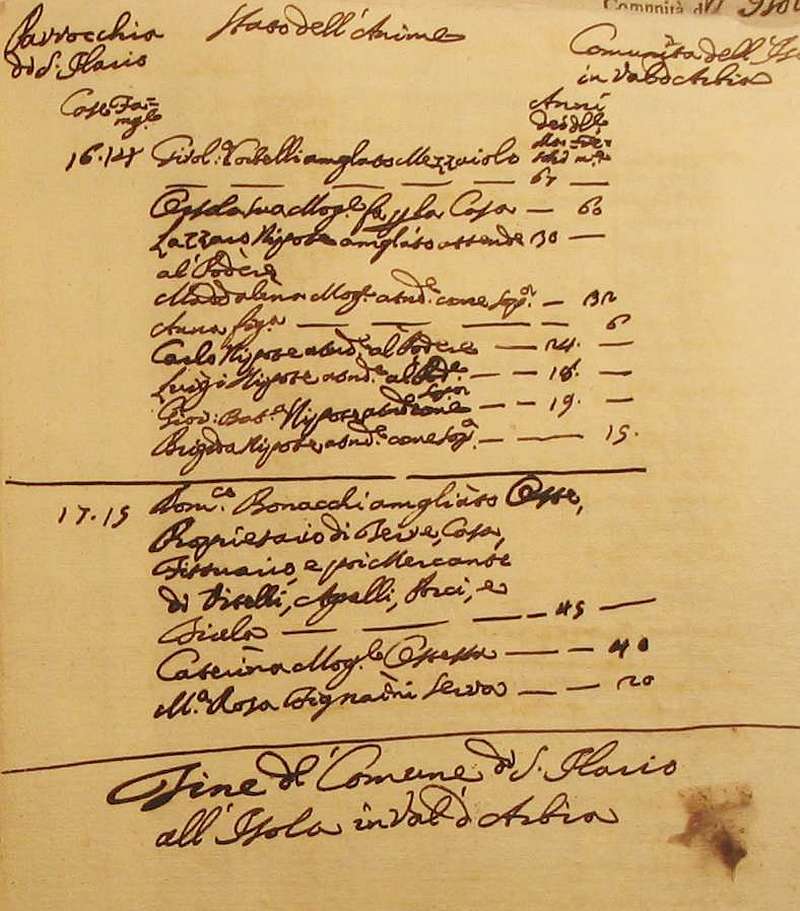 Comunità d
Parrocchia
di S. Ilario
Stato dell'Anime
Comunità dell' Iso
in Val d'Arbia
Case Fa=
mgle
Anni
16. 14 Girol: Tortelli amgliato Mezzaiolo
67
sua Mogl. fa la Casa — 60
Lazzaro Nipote amgliato attende 30 —
al Podere
Maddalena Mogl. atnde come Sopa. — 32
Anna figa — — — — 6
Carlo Nipote atnde al Podere — 24. —
Luigi Nipote atnde al Pode. — — 18. —
Giov: Bata Nipote atnde come — — 19. —
Sopa
Brigida Nipote atnde come Sopa. — — 15.
17. 15 Domco Bonacchi amgliato Oste,
Proprietario di Terre, Casa,
e poi Mercante
di Vitelli, Agnelli, Porci, e
— — — — 45 —
Caterina Mogle Ostessa — — 40
Ma Rosa Serva — — 20
Fine del Comune di S. Ilario
all' Isola in Val d'Arbia